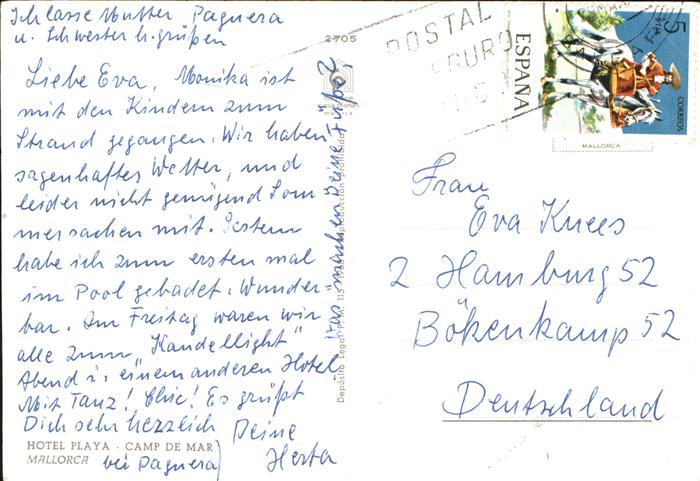 Ich lasse Mutter Paguera
u. Schwester h. grüßen
Liebe Eva, Monika ist
mit den Kindern zum
Strand gegangen. Wir haben
sagenhaftes Wetter, und
leider nicht genügend Som
mersachen mit. Gestern
habe ich zum ersten mal
im Pool gebadet. Wunder=
bar. Am Freitag waren wir
alle zum "Kandellight"
Abend i. einem anderen Hotel
Mit Tanz! Chic! Es grüßt
Dich sehr herzlich Deine
Herta
HOTEL PLAYA - CAMP DE MAR
MALLORCA bei Paguera)
Was machen Deine Füße?
2-705
Depósito Legal P. M. 115
reproducción prohibida
POSTAL
ESPAÑA
5
PTA
CORREOS
MALLORCA
Frau
Eva Knees
2 Hamburg 52
Bökenkamp 52
Deutschland